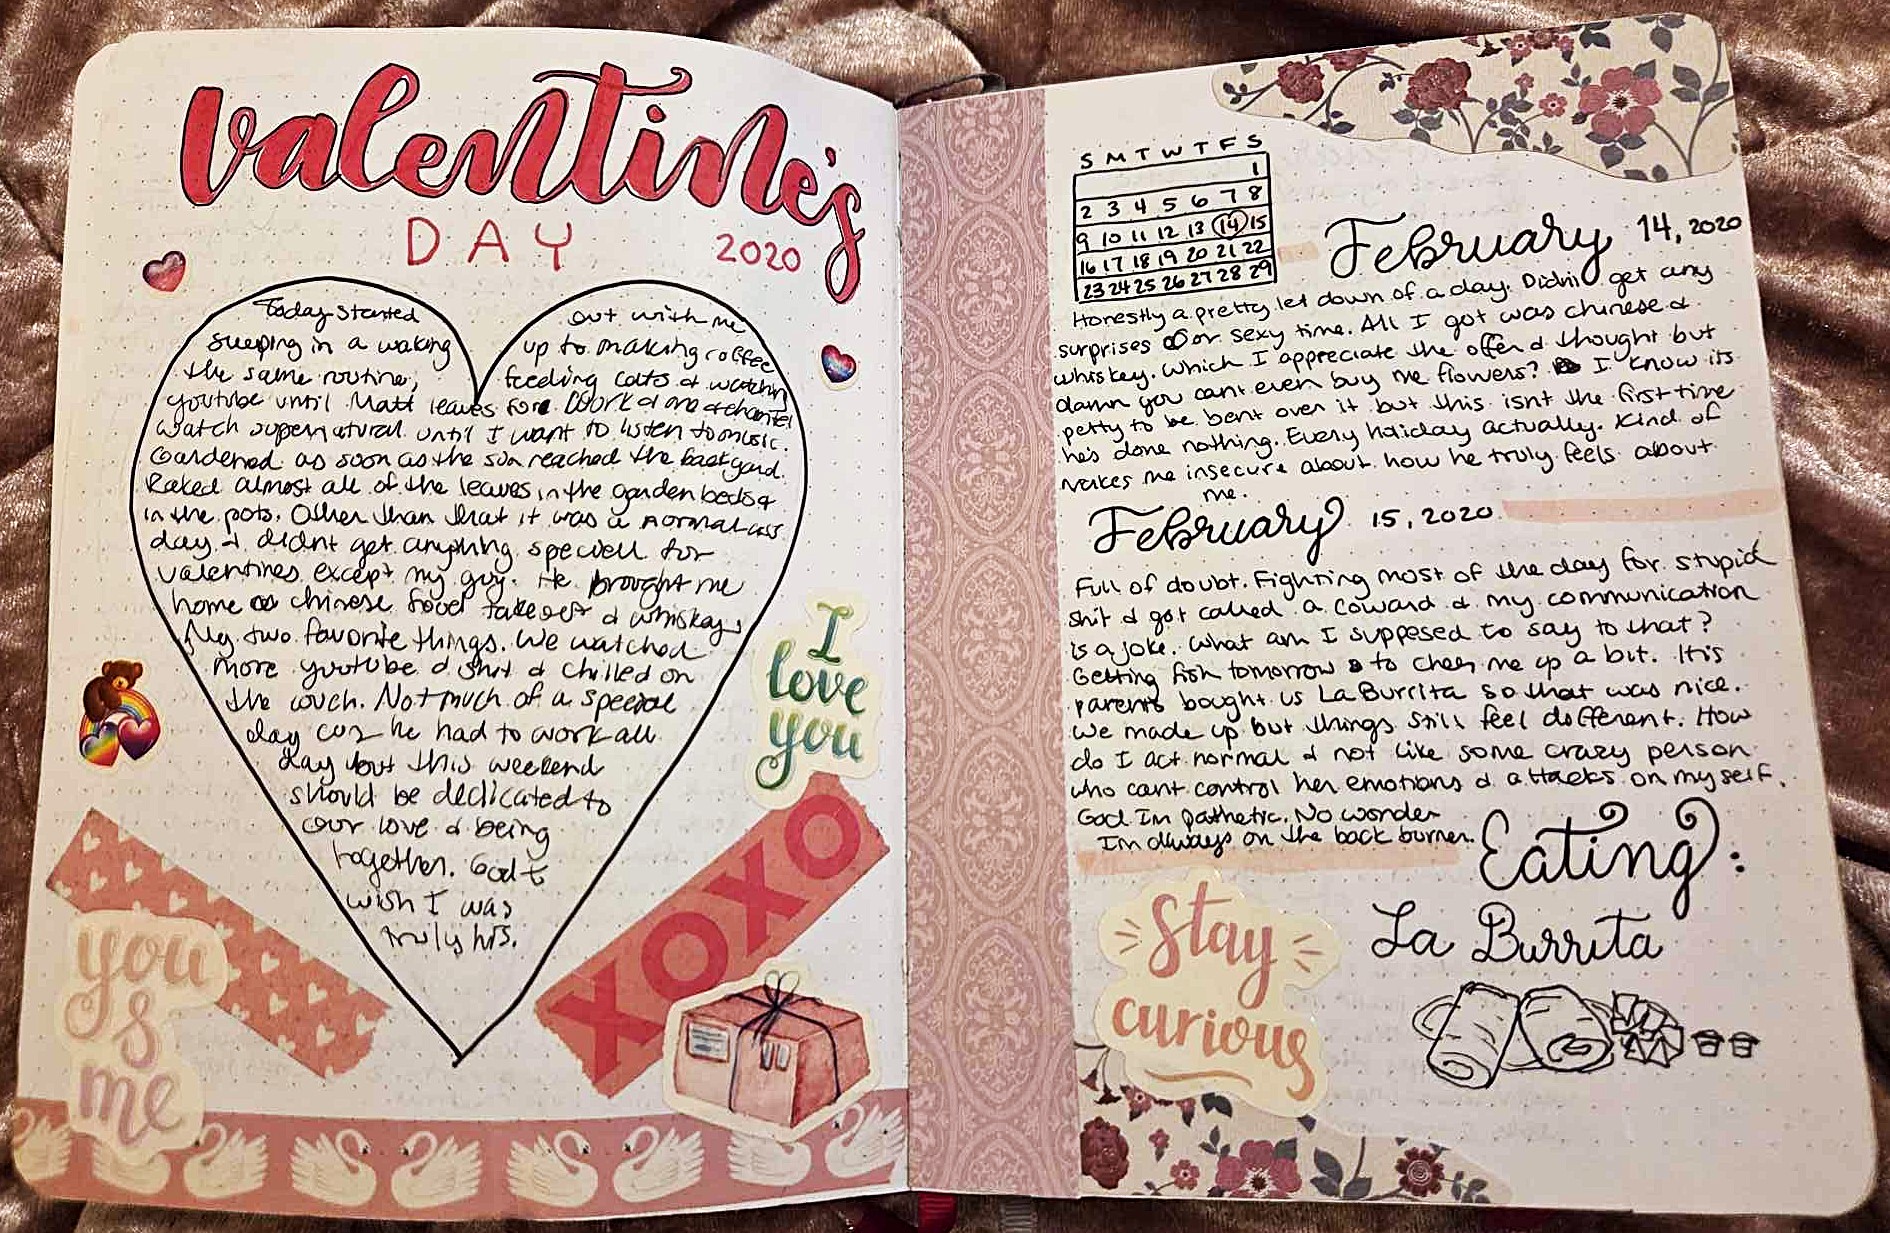 Valentine's
DAY 2020
Today started out with me
sleeping in a waking up to making coffee
the same routine, feeding cats & watching
youtube until Matt leaves for work & me &
watch supernatural until I want to listen to music.
Gardened as soon as the sun reached the backyard.
Raked almost all of the leaves in the garden beds &
in the pots. Other than that it was a normal ass
day I didnt get anything speciell for
valentines except my guy. He brought me
home chinese food takeout & whiskey
My two favorite things. We watched
more youtube & shit & chilled on
the couch. Not much of a special
day cuz he had to work all
day but this weekend
should be dedicated to
our love & being
together. God I
wish I was
truly his.
I
love
you
XOXO
you
&
me
S M T W T F S
1
2 3 4 5 6 7 8
9 10 11 12 13 14 15
16 17 18 19 20 21 22
23 24 25 26 27 28 29
February 14, 2020
Honestly a pretty let down of a day. Didnt get any
surprises or sexy time. All I got was chinese &
whiskey. Which I appreciate the offer & thought but
damn you cant even buy me flowers? I know its
petty to be bent over it but this isnt the first time
he's done nothing. Every holiday actually. Kind of
makes me insecure about how he truly feels about
me.
February 15, 2020
Full of doubt. Fighting most of the day for stupid
shit & got called a coward & my communication
is a joke. What am I supposed to say to that?
Getting fish tomorrow to cheer me up a bit. His
parents bought us La Burrita so that was nice.
We made up but things still feel different. How
do I act normal & not like some crazy person
who cant control her emotions & attacks on myself.
God Im pathetic. No wonder
Im always on the back burner.
Eating:
La Burrita
Stay
curious